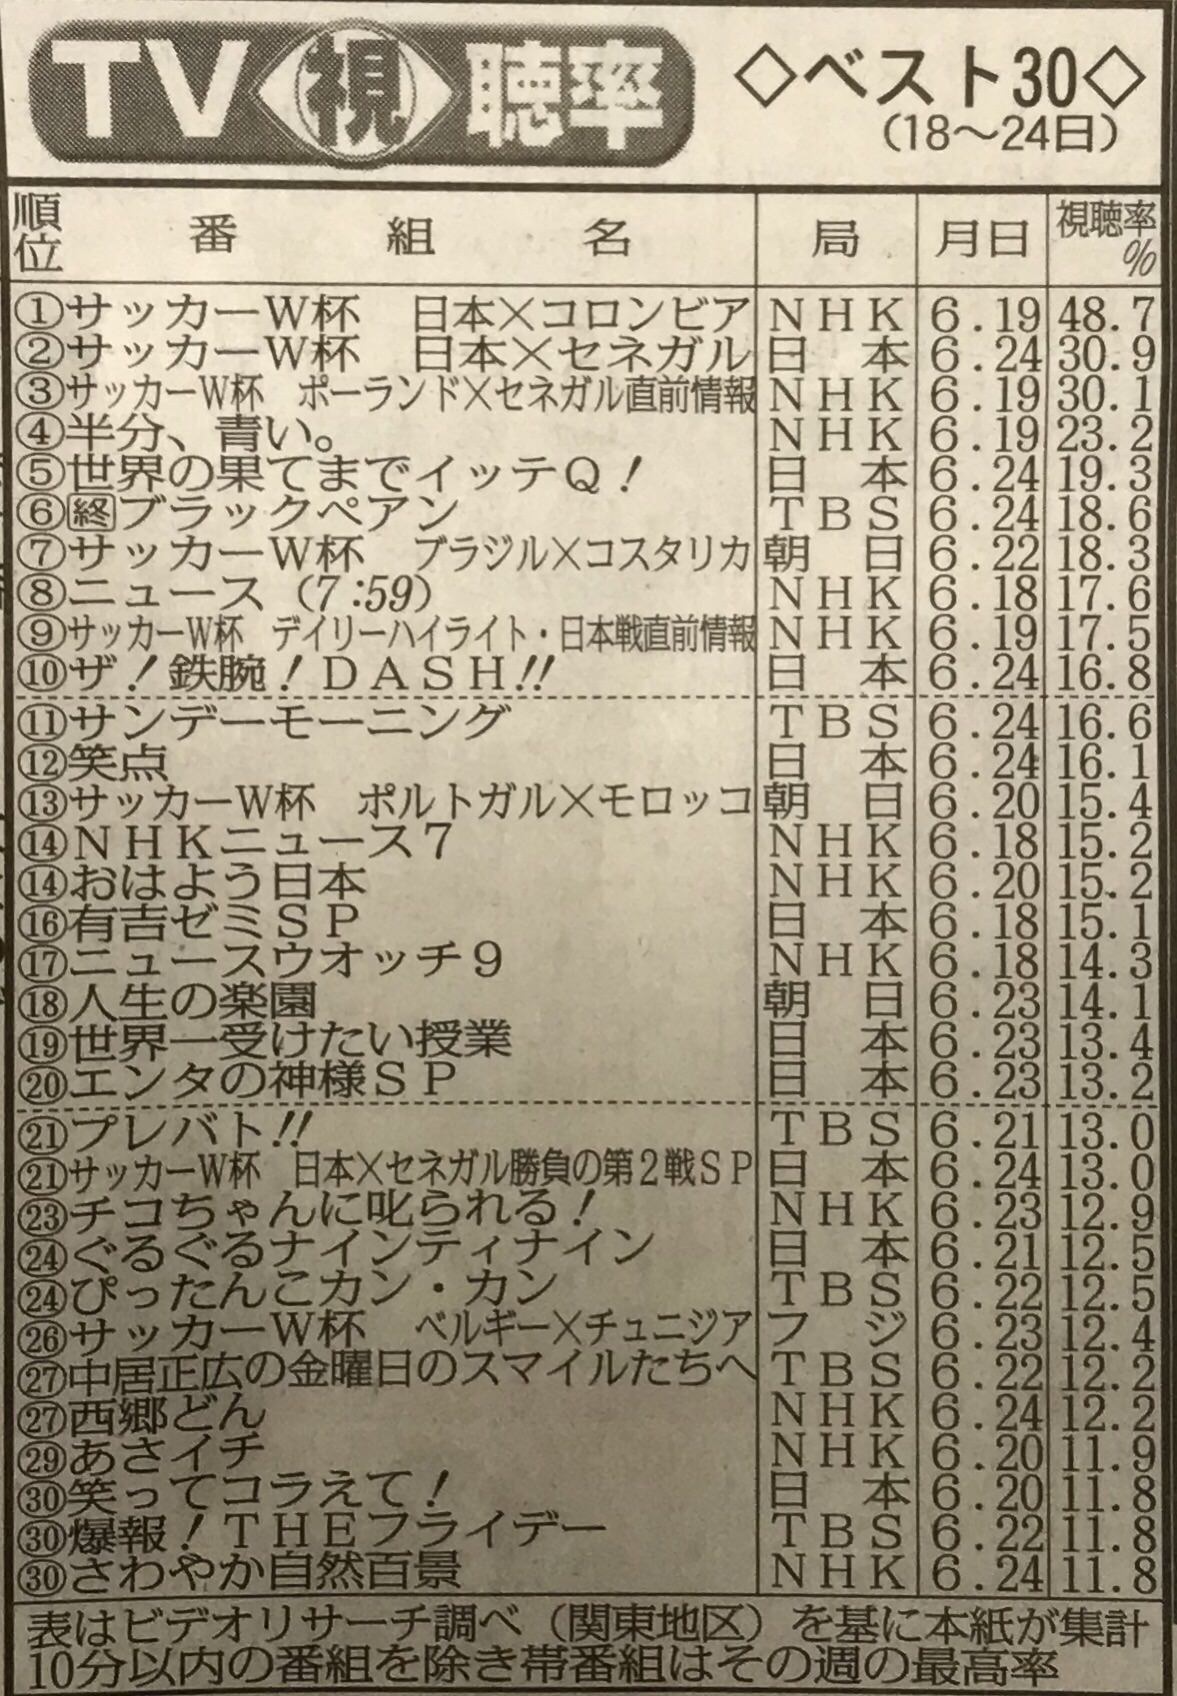 TV視聴率 ◇ベスト30◇
(18〜24日)
順位 番組名 局 月日 視聴率%
①サッカーW杯 日本×コロンビア NHK 6.19 48.7
②サッカーW杯 日本×セネガル 日本 6.24 30.9
③サッカーW杯 ポーランド×セネガル直前情報 NHK 6.19 30.1
④半分、青い。 NHK 6.19 23.2
⑤世界の果てまでイッテQ! 日本 6.24 19.3
⑥終ブラックペアン TBS 6.24 18.6
⑦サッカーW杯 ブラジル×コスタリカ 朝日 6.22 18.3
⑧ニュース(7:59) NHK 6.18 17.6
⑨サッカーW杯 デイリーハイライト・日本戦直前情報 NHK 6.19 17.5
⑩ザ!鉄腕!DASH!! 日本 6.24 16.8
⑪サンデーモーニング TBS 6.24 16.6
⑫笑点 日本 6.24 16.1
⑬サッカーW杯 ポルトガル×モロッコ 朝日 6.20 15.4
⑭NHKニュース7 NHK 6.18 15.2
⑭おはよう日本 NHK 6.20 15.2
⑯有吉ゼミSP 日本 6.18 15.1
⑰ニュースウオッチ9 NHK 6.18 14.3
⑱人生の楽園 朝日 6.23 14.1
⑲世界一受けたい授業 日本 6.23 13.4
⑳エンタの神様SP 日本 6.23 13.2
㉑プレバト!! TBS 6.21 13.0
㉑サッカーW杯 日本×セネガル勝負の第2戦SP 日本 6.24 13.0
㉓チコちゃんに叱られる! NHK 6.23 12.9
㉔ぐるぐるナインティナイン 日本 6.21 12.5
㉔ぴったんこカン・カン TBS 6.22 12.5
㉖サッカーW杯 ベルギー×チュニジア フジ 6.23 12.4
㉗中居正広の金曜日のスマイルたちへ TBS 6.22 12.2
㉗西郷どん NHK 6.24 12.2
㉙あさイチ NHK 6.20 11.9
㉚笑ってコラえて! 日本 6.20 11.8
㉚爆報!THEフライデー TBS 6.22 11.8
㉚さわやか自然百景 NHK 6.24 11.8
表はビデオリサーチ調べ(関東地区)を基に本紙が集計
10分以内の番組を除き帯番組はその週の最高率